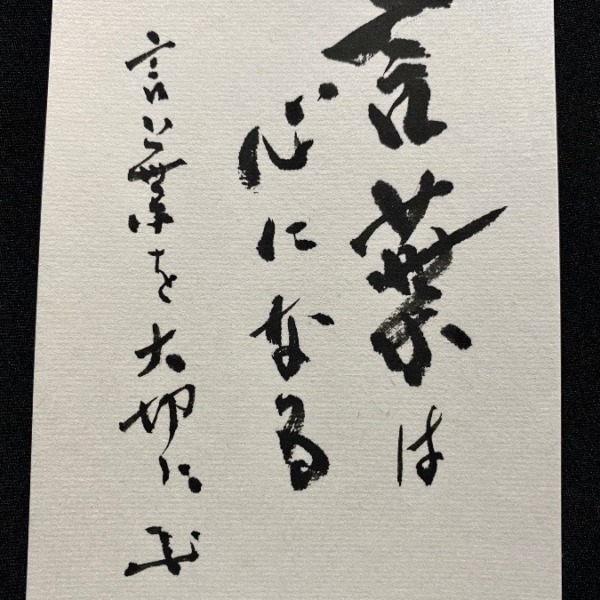 言葉は
心になる
言葉を大切に